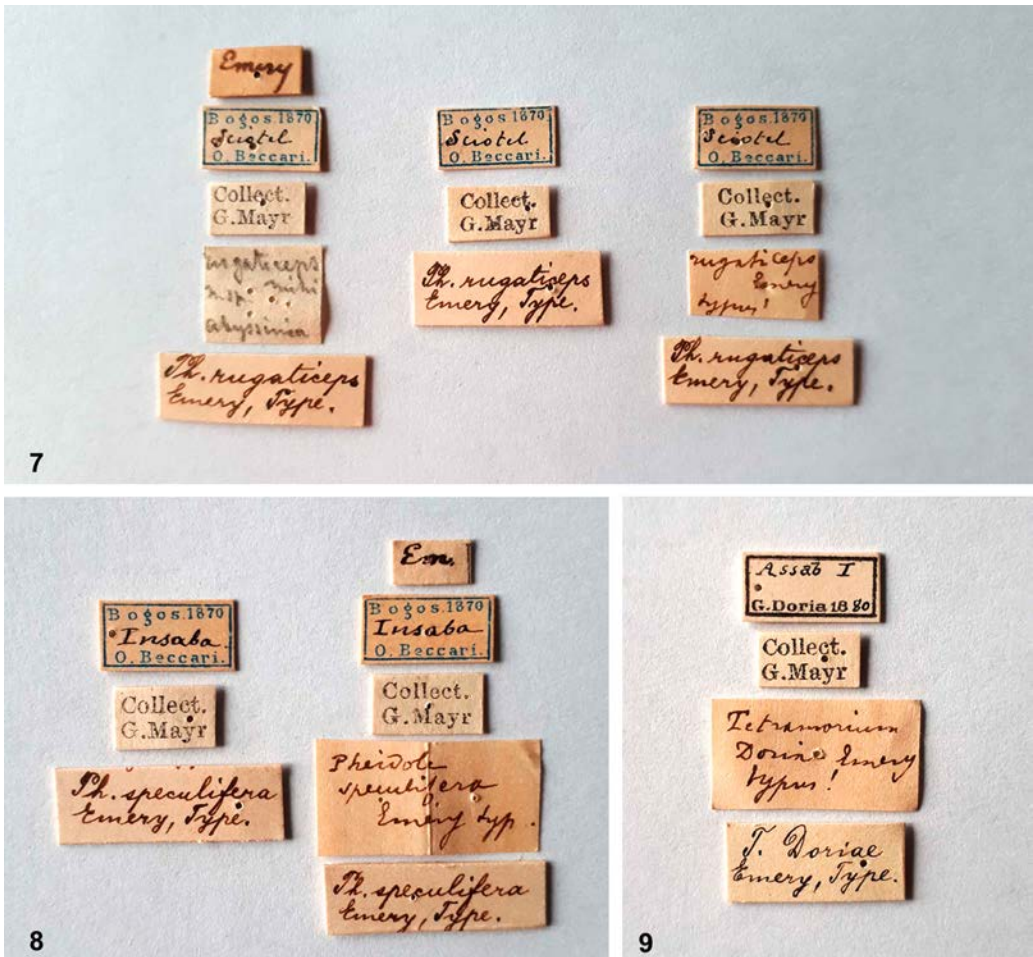 Emery
Bogos.1870
Sciotel
O. Beccari.
Collect.
G.Mayr
rugaticeps
mihi
n. sp.
abyssinia
Ph. rugaticeps
Emery, Type.
Bogos.1870
Sciotel
O. Beccari.
Collect.
G.Mayr
Ph. rugaticeps
Emery, Type.
Bogos.1870
Sciotel
O. Beccari.
Collect.
G.Mayr
rugaticeps
Emery
typus!
Ph. rugaticeps
Emery, Type.
7
Bogos.1870
Insaba
O. Beccari.
Collect.
G.Mayr
Ph. speculifera
Emery, Type.
Em.
Bogos.1870
Insaba
O. Beccari.
Collect.
G.Mayr
Pheidole
speculifera
Emery typ.
Ph. speculifera
Emery, Type.
8
Assab I
G.Doria 1880
Collect.
G.Mayr
Tetramorium
Doriae Emery
typus!
T. Doriae
Emery, Type.
9